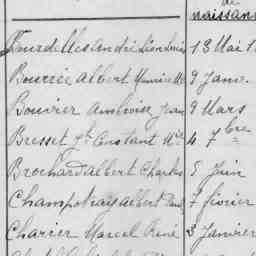 de
naissance
Bourdelles André Léon Louis 13 Mai 1
Bourrée Albert Maurice 9 Janv.
Bouvrer Ambroise Jean 9 Mars
Bresset Constant 4 7bre
Brochard Albert Charles 5 Juin
Champotray Albert Paul 7 février
Charier Marcel René 3 Janvier